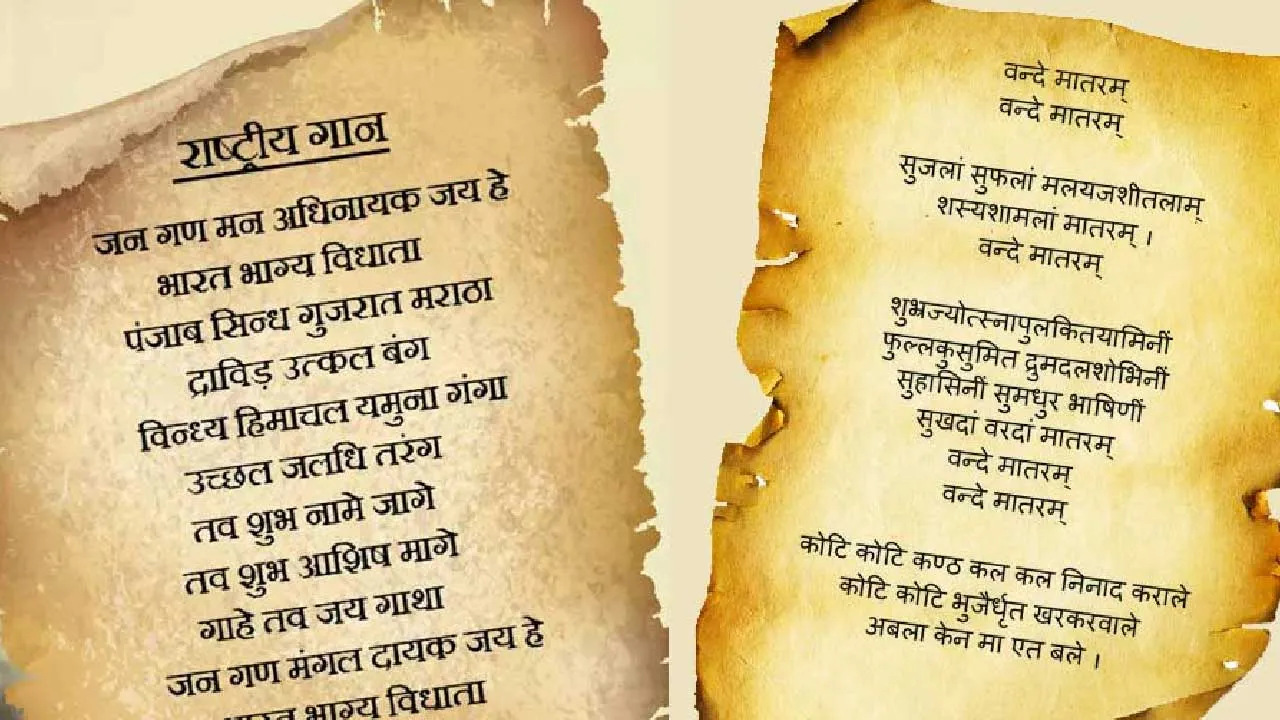 राष्ट्रीय गान
जन गण मन अधिनायक जय हे
भारत भाग्य विधाता
पंजाब सिन्ध गुजरात मराठा
द्राविड़ उत्कल बंग
विन्ध्य हिमाचल यमुना गंगा
उच्छल जलधि तरंग
तव शुभ नामे जागे
तव शुभ आशिष मागे
गाहे तव जय गाथा
जन गण मंगल दायक जय हे
भारत भाग्य विधाता
वन्दे मातरम्
वन्दे मातरम्
सुजलां सुफलां मलयजशीतलाम्
शस्यशामलां मातरम् ।
वन्दे मातरम्
शुभ्रज्योत्स्नापुलकितयामिनीं
फुल्लकुसुमित द्रुमदलशोभिनीं
सुहासिनीं सुमधुर भाषिणीं
सुखदां वरदां मातरम्
वन्दे मातरम्
वन्दे मातरम्
कोटि कोटि कण्ठ कल कल निनाद कराले
कोटि कोटि भुजैर्धृत खरकरवाले
अबला केन मा एत बले ।